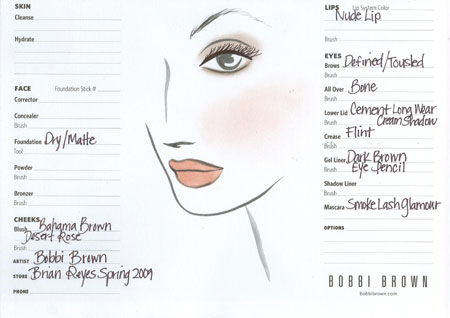 SKIN
Cleanse
Hydrate
Brush
FACE Foundation Stick #
Corrector
Brush
Concealer
Brush
Foundation Dry/Matte
Tool
Powder
Brush
Bronzer
Brush
CHEEKS
Blush Bahama Brown
Desert Rose
Brush
ARTIST Bobbi Brown
STORE Brian Reyes Spring 2009
PHONE
LIPS Lip System Color
Nude Lip
Brush
EYES
Brows Defined/Tousled
Brush
All Over Bone
Brush
Lower Lid Cement Long Wear
Brush Cream Shadow
Crease Flint
Brush
Gel Liner Dark Brown
Brush Eye Pencil
Shadow Liner
Brush
Mascara Smoke Lash Glamour
OPTIONS
BOBBI BROWN
bobbibrown.com